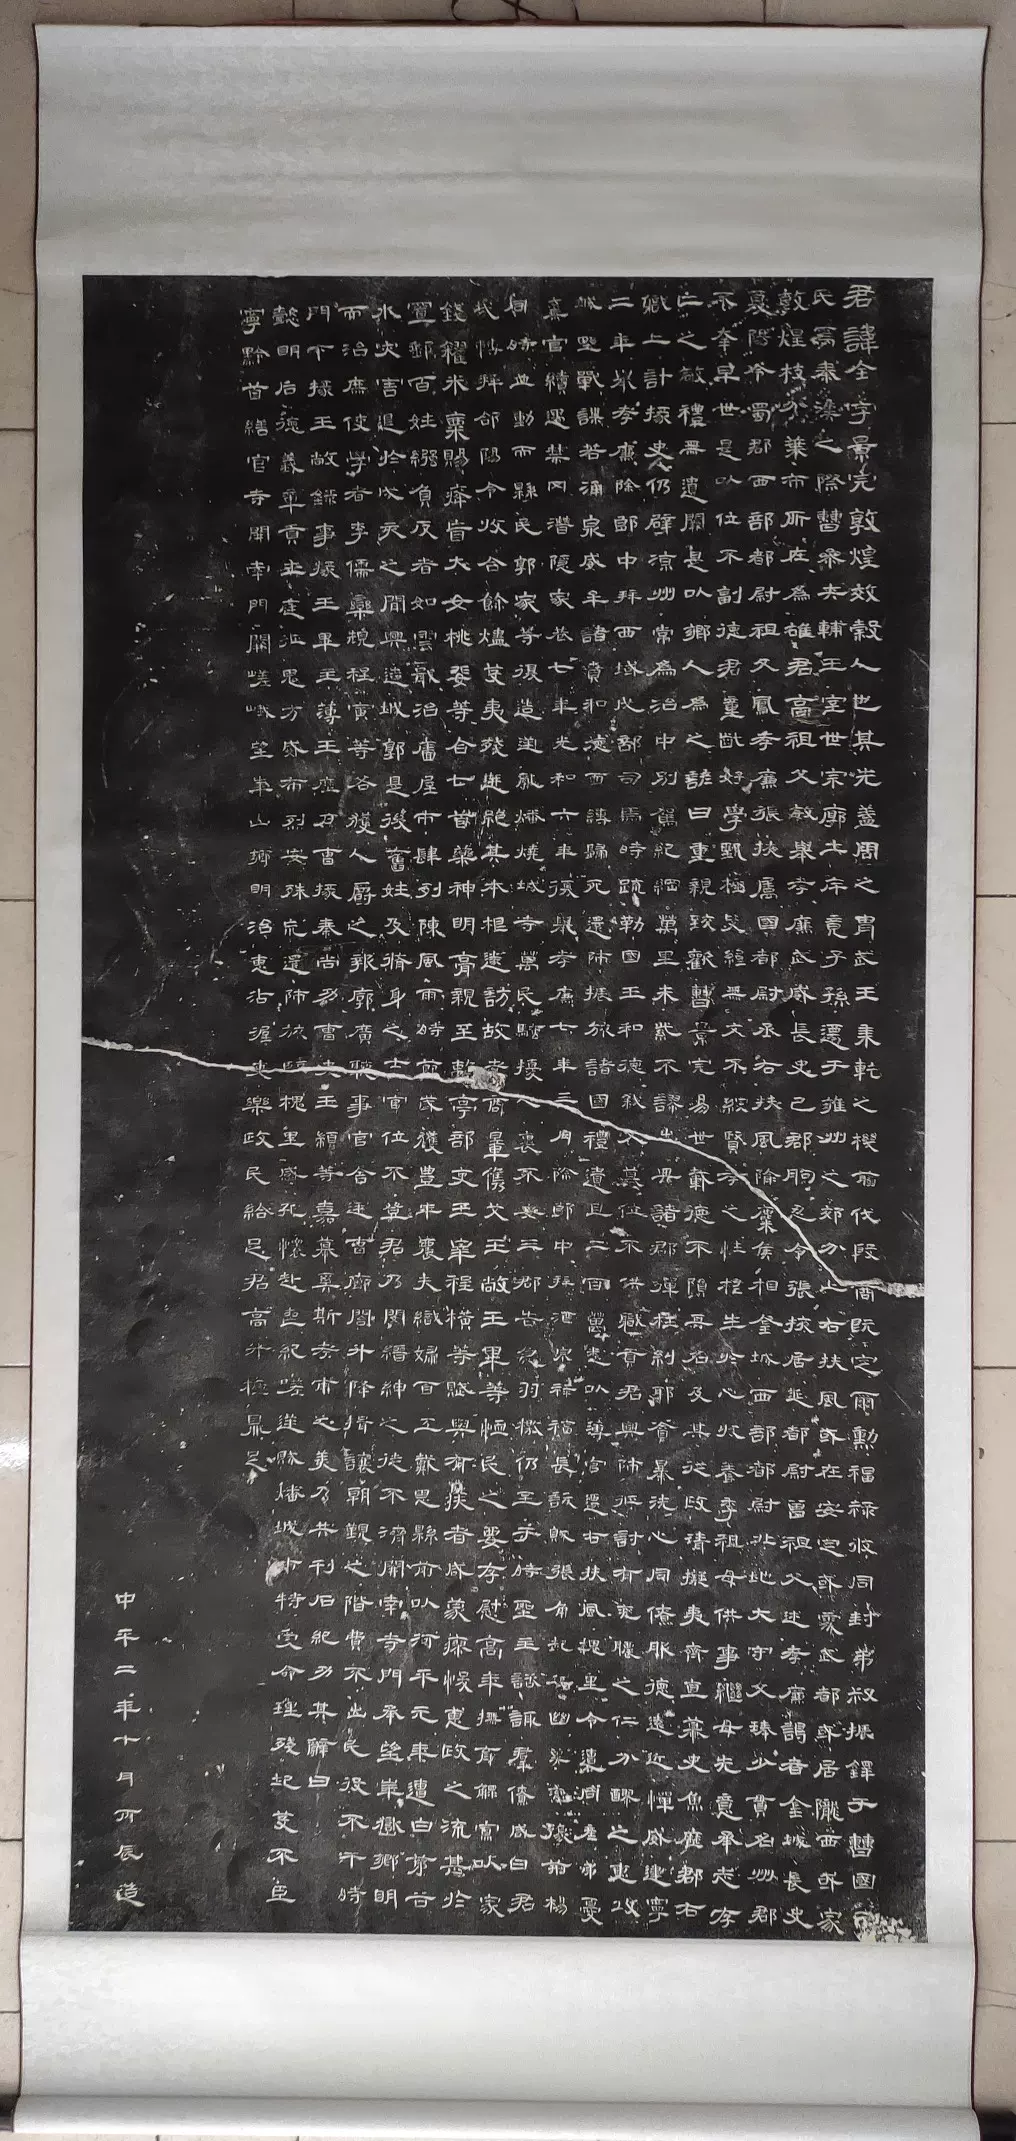 君諱全字景完敦煌效穀人也其先蓋周之冑武王秉乾之機翦伐殷商既定爾勳福祿攸同封弟叔振鐸于曹國
氏焉秦漢之際曹參夾輔王室世宗廓土斥竟子孫遷于雍州之郊分止右扶風或在安定或處武都或居隴西或家
敦煌枝分葉布所在為雄君高祖父敏舉孝廉武威長史巴郡朐忍令張掖居延都尉曾祖父述孝廉謁者金城長史
夏陽令蜀郡西部都尉祖父鳳孝廉張掖屬國都尉丞右扶風隃麋侯相金城西部都尉北地大守父琫少貫名州郡
不幸早世是以位不副德君童齔好學甄極毖緯無文不綜賢孝之性根生於心收養季祖母供事繼母先意承志存
亡之敬禮無遺闕是以鄉人為之諺曰重親致歡曹景完易世載德不隕其名及其從政清擬夷齊直慕史魚歷郡右
職上計掾史仍辟涼州常為治中別駕紀綱萬里朱紫不謬出典諸郡彈枉糾邪貪暴洗心同僚服德遠近憚威建寧
二年舉孝廉除郎中拜西域戊部司馬時疏勒國王和德弒父篡位不供職貢君興師征討有兗膿之仁分醪之惠攻
城野戰謀若涌泉威牟諸賁和德面縛歸死還師振旅諸國禮遺且二百萬悉以簿官遷右扶風槐里令遭同產弟憂
棄官續遇禁冈潛隱家巷七年光和六年復舉孝廉七年三月除郎中拜酒泉祿福長訞賊張角起兵幽冀兗豫荊楊
同時並動而縣民郭家等復造逆亂燔燒城寺萬民騷擾人裹不安三郡告急羽檄仍至于時聖主諮諏群僚咸曰君
哉轉拜郃陽令收合餘燼芟夷殘迸絕其本根遂訪故老商量儁艾王敞王畢等恤民之要存慰高年撫育鰥寡以家
錢糴米粟賜癃盲大女桃婓等合七首藥神明膏親至離亭部吏王宰程橫等賦與有疾者咸蒙瘳悛惠政之流甚於
置郵百姓繦負反者如雲戢治廧屋市肆列陳風雨時節歲獲豐年農夫織婦百工戴恩縣前以河平元年遭白茅谷
水災害退於戌亥之間興造城郭是後舊姓及脩身之士官位不登君乃閔縉紳之徒不濟開南寺門承望華嶽鄉明
而治庶使學者李儒欒規程寅等各獲人爵之報廓廣聽事官舍廷曹廊閤升降揖讓朝覲之階費不出民役不干時
門下掾王敞錄事掾王畢主簿王歷戶曹掾秦尚功曹史王顓等嘉慕奚斯考甫之美乃共刊石紀功其辭曰
懿明后德義章貢王庭征鬼方威布烈安殊荒還師旅臨槐里感孔懷赴喪紀嗟逆賊燔城市特受命理殘圮芟不臣
寧黔首繕官寺開南門闕嵯峨望華山鄉明治惠沾渥吏樂政民給足君高升極鼎足
中平二年十月丙辰造